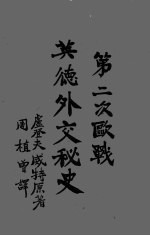 第二次歐戰
英德外交秘史
盧登夫威特原著
周植曾譯